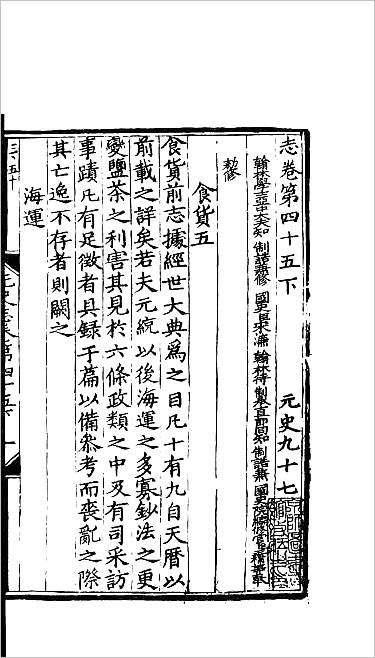 志卷第四十五下　元史九十七
翰林學士亞中大夫知制誥兼修國史臣宋濂翰林待制承直郎同知制誥兼國史院編修官臣王禕奉
敕修
食貨五
食貨前志據經世大典爲之目凡十有九自天曆以
前載之詳矣若夫元統以後海運之多寡鈔法之更
變鹽茶之利害其見於六條政類之中及有司采訪
事蹟凡有足徵者具録于篇以備叅考而喪亂之際
其亡逸不存者則闕之
海運
元史志卷第四十五下　一